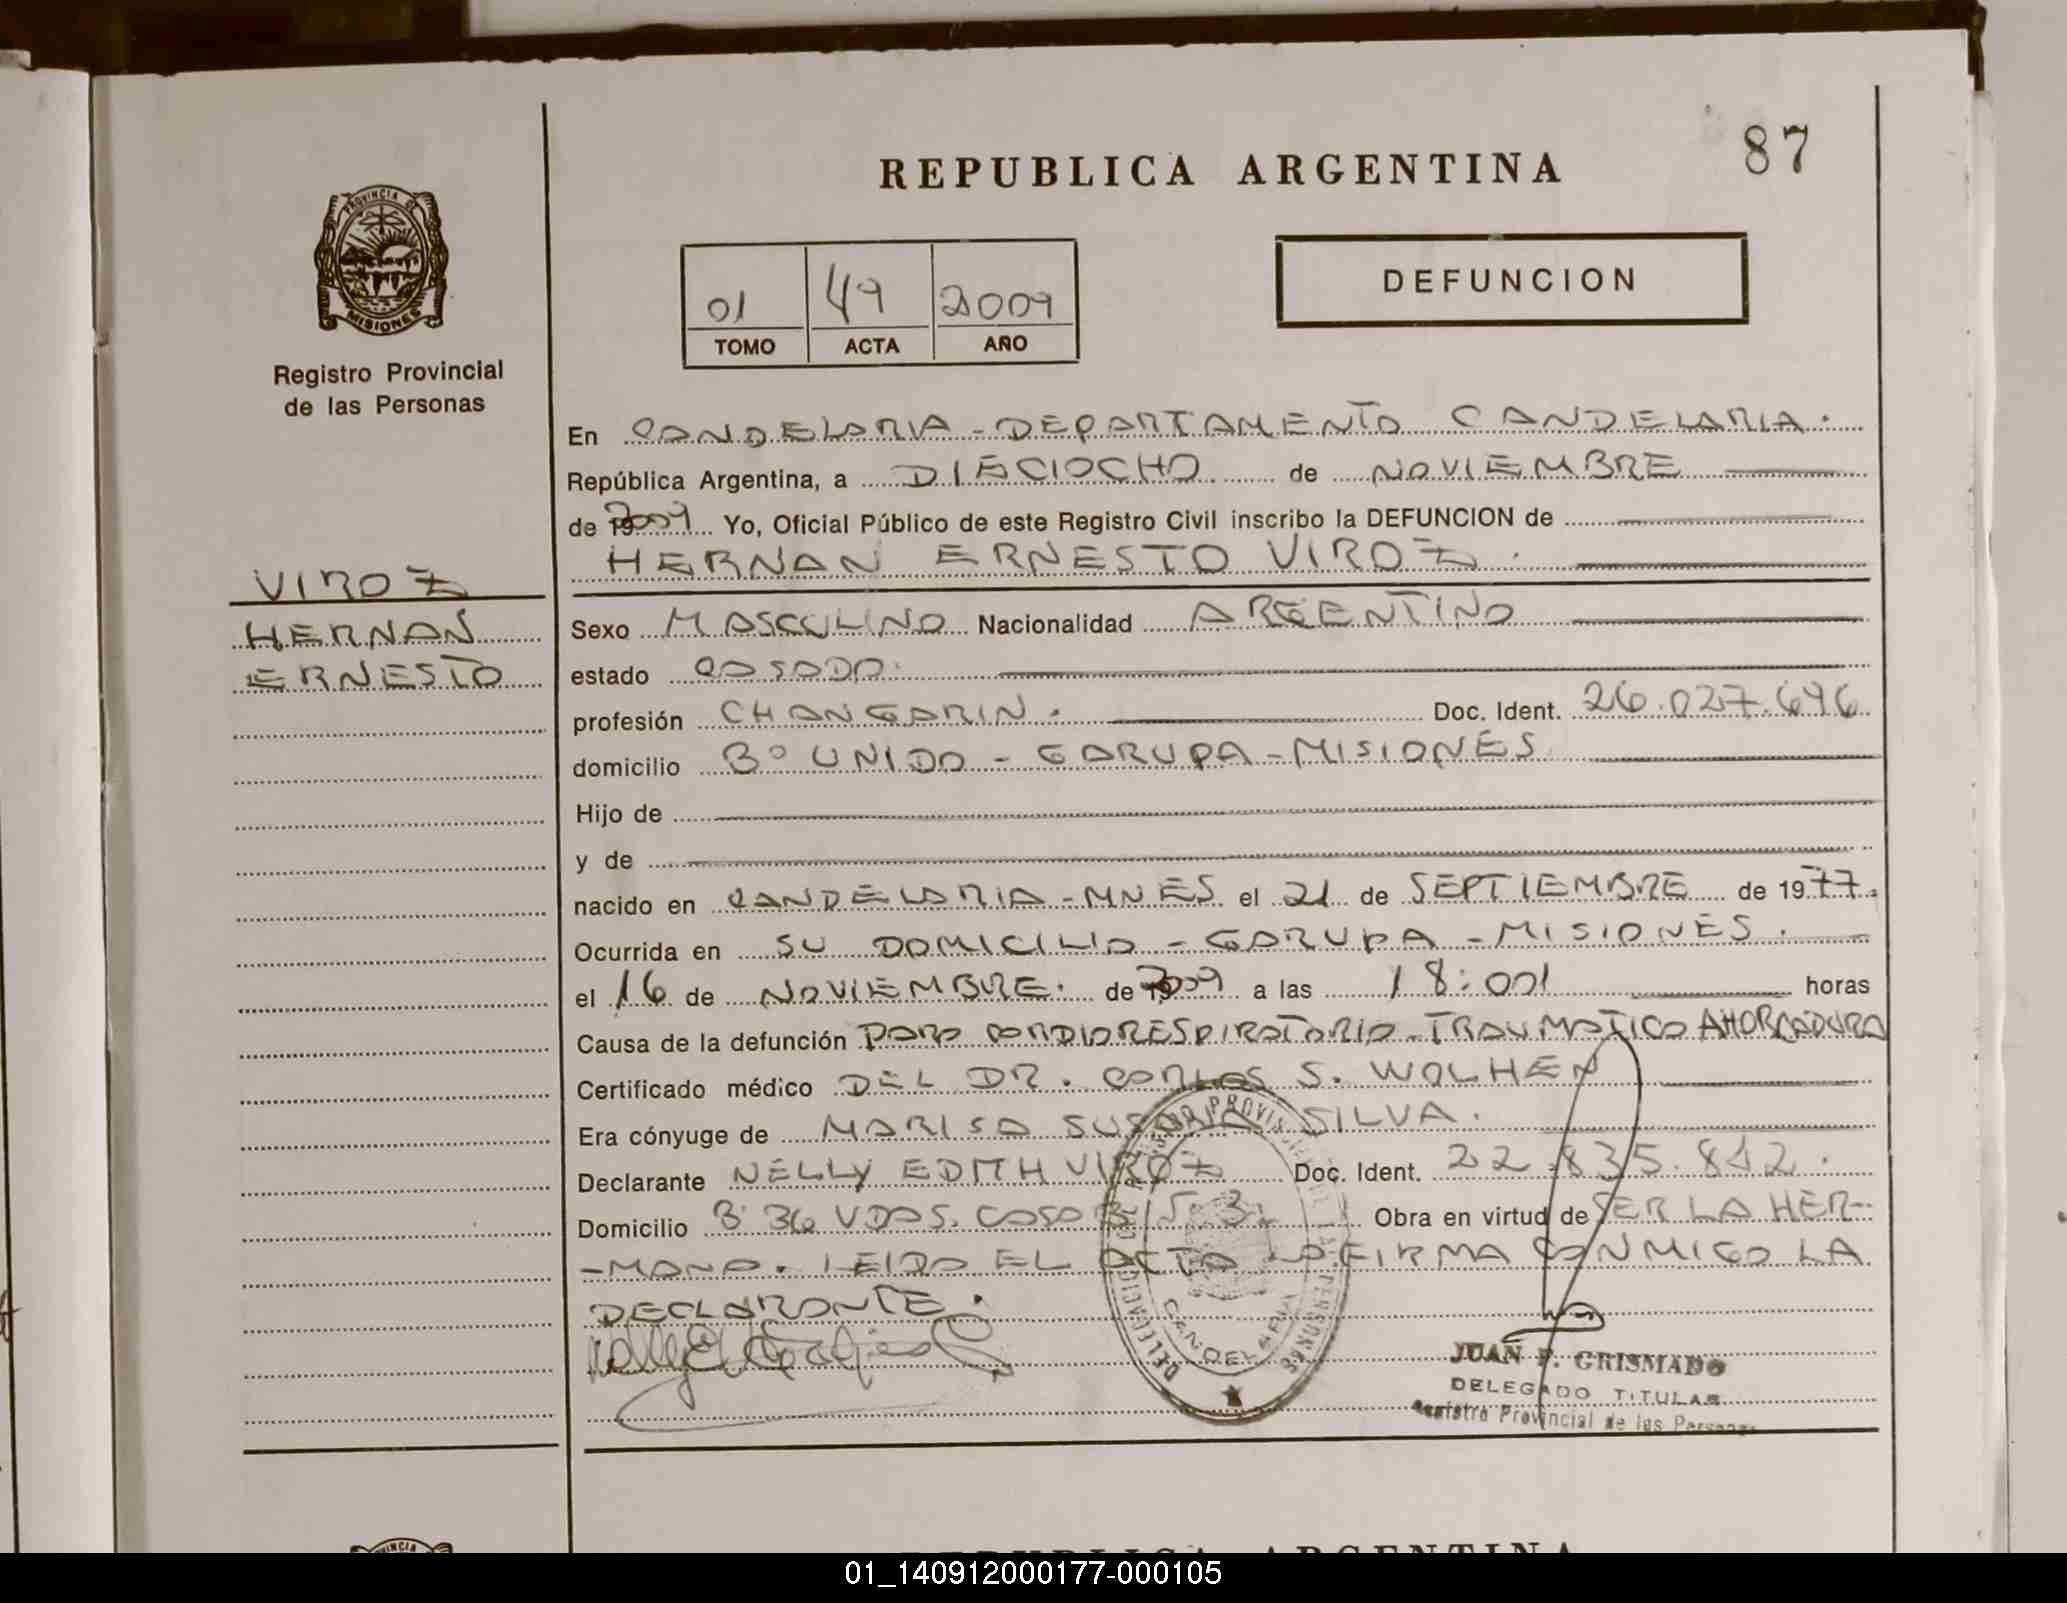 87
REPUBLICA ARGENTINA
PROVINCIA DE
MISIONES
Registro Provincial
de las Personas
01 49 2009
TOMO ACTA AÑO
DEFUNCION
En CANDELARIA - DEPARTAMENTO CANDELARIA.
República Argentina, a DIECIOCHO de NOVIEMBRE
de 2009 Yo, Oficial Público de este Registro Civil inscribo la DEFUNCION de
HERNAN ERNESTO VIROZ.
VIROZ
HERNAN
ERNESTO
Sexo MASCULINO Nacionalidad ARGENTINO
estado CASADO.
profesión CHANGARIN. Doc. Ident. 26.027.696
domicilio Bº UNIDO - GARUPA - MISIONES
Hijo de
y de
nacido en CANDELARIA - MNES el 21 de SEPTIEMBRE de 1977.
Ocurrida en SU DOMICILIO - GARUPA - MISIONES.
el 16 de NOVIEMBRE. de 2009 a las 18:00 horas
Causa de la defunción PARO CARDIORESPIRATORIO - TRAUMATICO AHORCADURA
Certificado médico DEL DR. CARLOS S. WOLHEN
Era cónyuge de MARISA SUSANA SILVA.
Declarante NELLY EDITH VIROZ Doc. Ident. 22.835.842.
Domicilio Bº 36 VDAS. CASA Obra en virtud de SER LA HER-
-MANA. LEIDO EL ACTA LA FIRMA CONMIGO LA
DECLARANTE.
DELEGACION CANDELARIA
JUAN F. GRISMADO
DELEGADO TITULAR
Registro Provincial de las Personas
REPUBLICA ARGENTINA
01_140912000177-000105